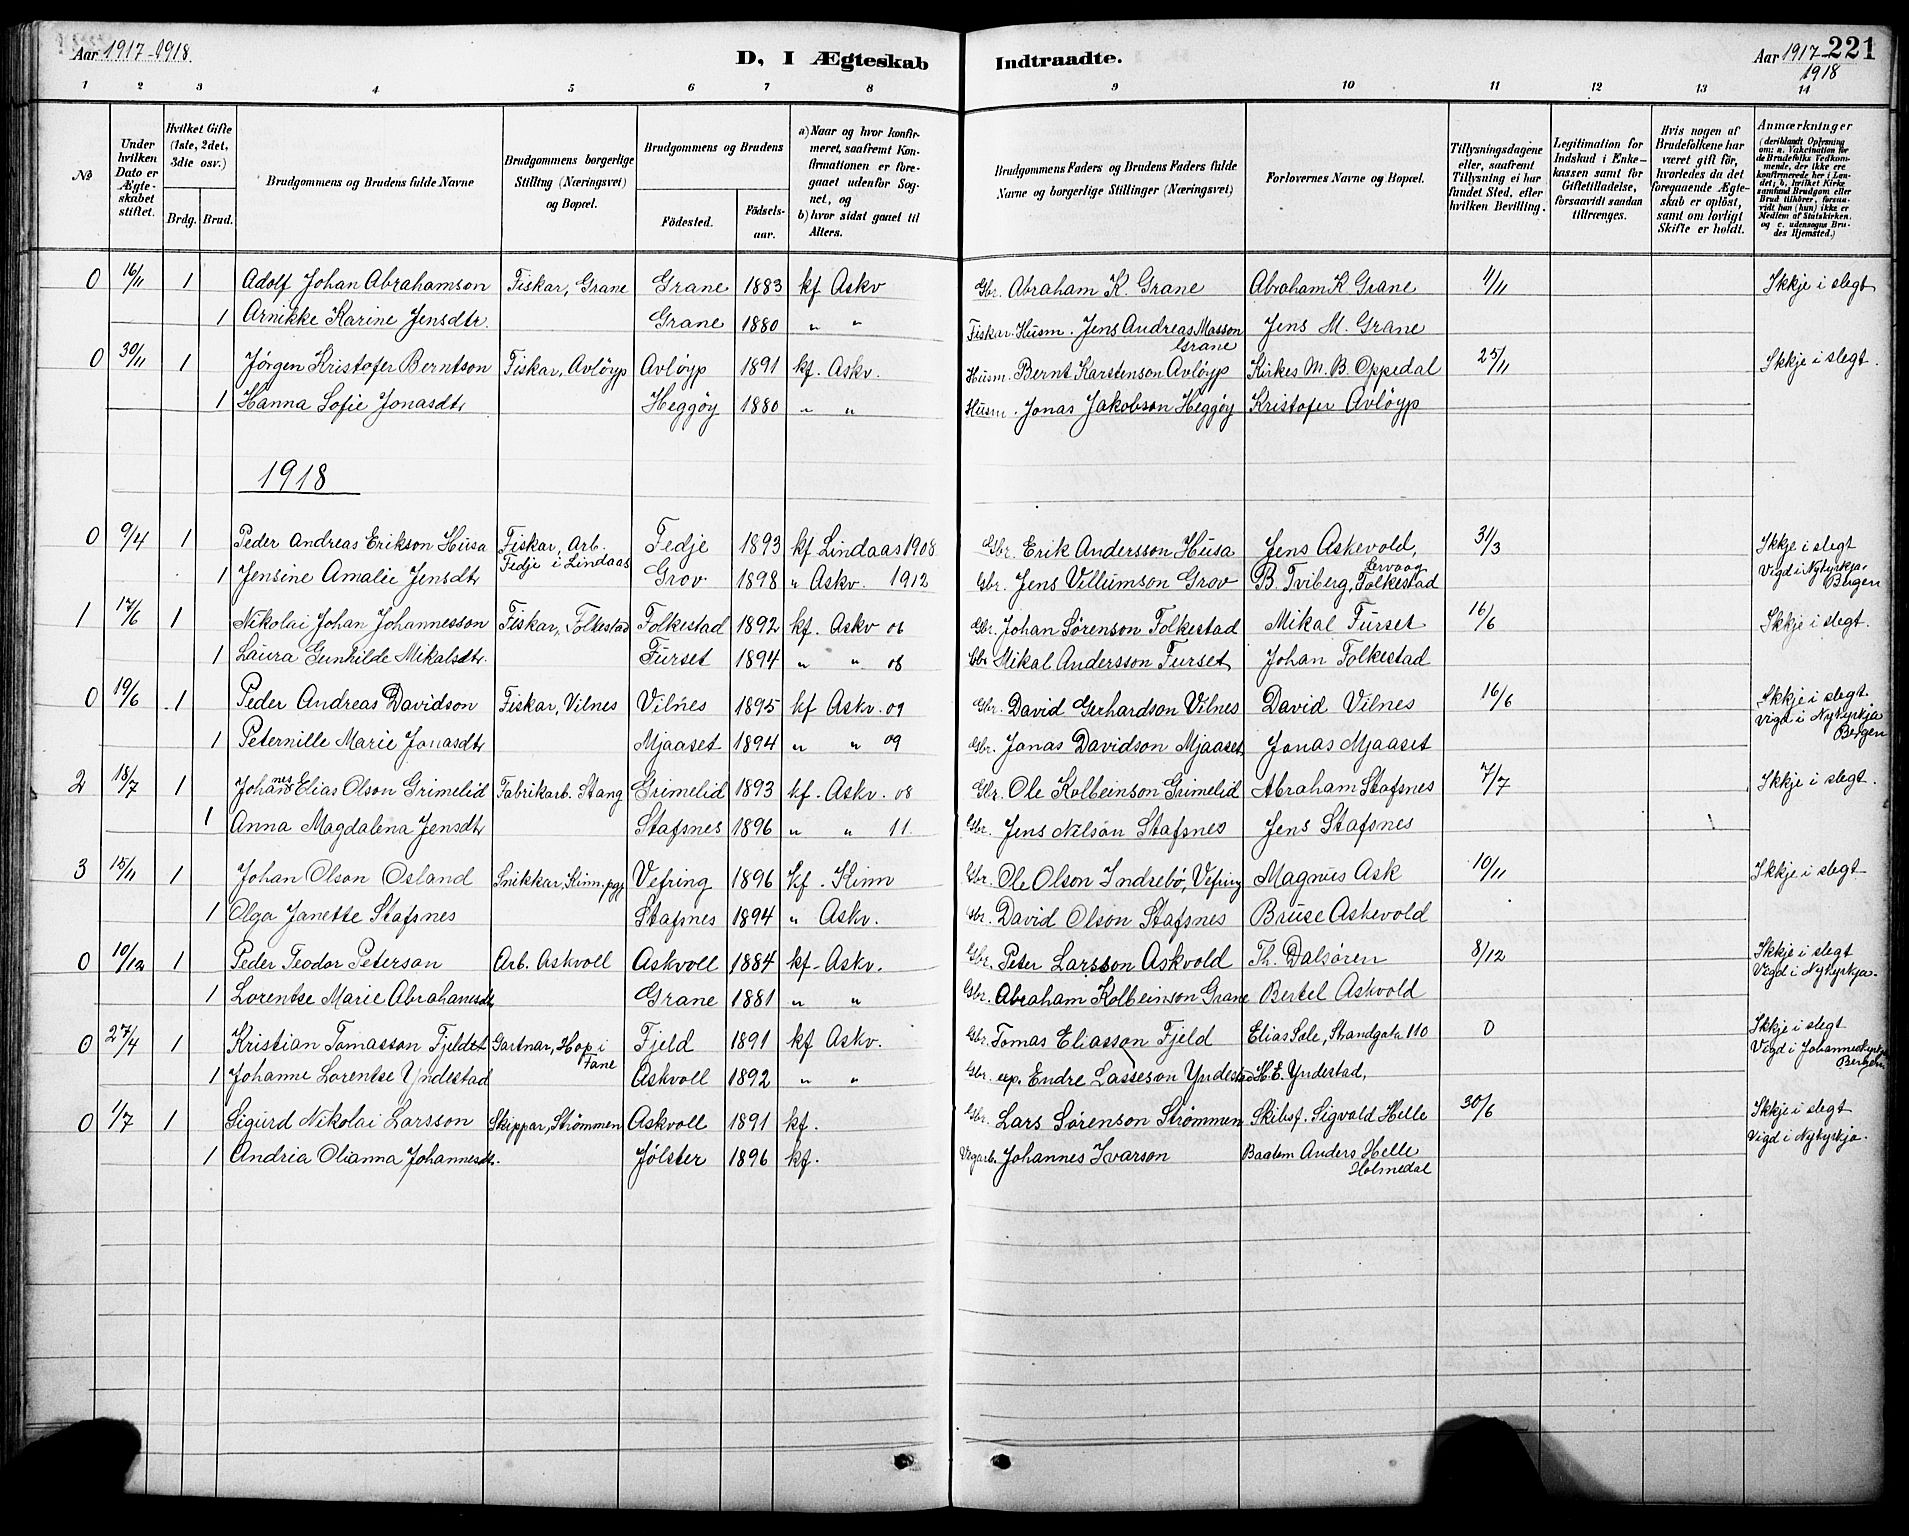 Aar 1917-1918.
D, I Ægteskab Indtraadte.
Aar 1917-1918
221
1 2 3 4 5 6 7 8 9 10 11 12 13 14
No
Under hvilken Dato er Ægteskabet stiftet.
Hvilket Gifte (1ste, 2det, 3die osv.)
Brdg. Brud.
Brudgommens og Brudens fulde Navne
Brudgommens borgerlige Stilling (Næringsvei) og Bopæl.
Brudgommens og Brudens
Fødested. Fødselsaar.
a) Naar og hvor konfirmeret, saafremt Konfirmationen er foregaaet udenfor Sognet, og
b) hvor sidst gaaet til Alters.
Brudgommens Faders og Brudens Faders fulde Navne og borgerlige Stillinger (Næringsvei)
Forlovernes Navne og Bopæl.
Tillysningsdagene eller, saafremt Tillysning ei har fundet Sted, efter hvilken Bevilling.
Legitimation for Indskud i Enkekassen samt for Giftetilladelse, forsaavidt saadan tiltrænges.
Hvis nogen af Brudefolkene har været gift før, hvorledes da det foregaaende Ægteskab er opløst, samt om lovligt Skifte er holdt.
Anmærkninger (deriblandt Oplysning om: a. Vakcination for de Brudefolks Vedkommende, der ikke ere konfirmerede her i Landet; b. hvilket Kirkesamfund Brudgom eller Brud tilhører, forsaavidt han (hun) ikke er Medlem af Statskirken, og c. udensogns Brudes Hjemsted.)
0 16/11 1 Adolf Johan Abrahamson Fiskar, Grane Grane 1883 kf Askv Gbr. Abraham K. Grane Abraham K Grane 4/11 Ikkje i slegt
1 Arnikke Karine Jensdtr. Grane 1880 " " Fiskar Husm. Jens Andreas Masson Grane Jens M. Grane
0 30/11 1 Jørgen Kristofer Berntson Fiskar, Avløyp Avløyp 1891 kf. Askv. Husm. Bernt Karstenson Avløyp Kirkes M. B. Oppedal 25/11 Ikkje i slegt.
1 Hanna Sofie Jonasdtr Heggøy 1880 " " Husm. Jonas Jakobson Heggøy Kristofer Avløyp
1918
0 9/4 1 Peder Andreas Erikson Husa Fiskar, Arb. Fedje i Lindaas Fedje 1893 kf Lindaas 1908 Gbr. Erik Andersson Husa Jens Askevold, 31/3 Ikkje i slegt
1 Jensine Amalie Jensdtr Grov 1898 " Askv. 1912 Gbr. Jens Villumson Grov B. Tviberg, Folkestad Vigd i Nykyrkja Bergen
1 17/6 1 Nikolai Johan Johannesson Fiskar, Folkestad Folkestad 1892 kf. Askv 06 Gbr. Johan Sørenson Folkestad Mikal Furset 16/6 Ikkje i slegt.
1 Laura Gunhilde Mikalsdtr. Furset 1894 " " 08 Gbr Mikal Andersson Furset Johan Folkestad
0 19/6 1 Peder Andreas Davidson Fiskar, Vilnes Vilnes 1895 kf Askv. 09 Gbr. David Gerhardson Vilnes David Vilnes 16/6 Ikkje i slegt.
1 Peternille Marie Jonasdtr Mjaaset 1894 " " 09 Gbr. Jonas Davidson Mjaaset Jonas Mjaaset vigd i Nykyrkja Bergen
2 18/7 1 Johannes Elias Olson Grimelid Fabrikarb. Stang Grimelid 1893 kf. Askv. 08 Gbr. Ole Kolbeinson Grimelid Abraham Stafsnes 7/7 Ikkje i slegt.
1 Anna Magdalena Jensdtr Stafsnes 1896 " " 11. Gbr. Jens Nilson Stafsnes Jens Stafsnes
3 15/11 1 Johan Olson Osland Snikkar, Kinn pgj Vefring 1896 kf. Kinn Gbr. Ole Olson Indrebø, Vefring Magnus Ask 10/11 Ikkje i slegt
1 Olga Janette Stafsnes Stafsnes 1894 " Askv. Gbr. David Olson Stafsnes Bruse Askevold
0 10/12 1 Peder Teodor Peterson Arb. Askvoll Askvoll 1884 kf. Askv. Gbr. Peter Larsson Askvold Th. Dalsøren 8/12 Ikkje i slegt
1 Lorentse Marie Abrahamsdtr Grane 1881 " " Gbr. Abraham Kolbeinson Grane Bertel Askvold Vigd i Nykyrkja.
0 27/4 1 Kristian Tomasson Fjeldet Gartnar, Hop i Fane Fjeld 1891 kf Askv. Gbr. Tomas Eliasson Fjeld Elias Sole, Strandgata 110 0 Ikkje i slegt
1 Johanne Lorentse Yndestad Askvoll 1892 " " Gbr. Endre Lasseson Yndestad H. E. Yndestad, Vigd i Johanneskyrkja Bergen
0 1/7 1 Sigurd Nikolai Larsson Skippar, Strømmen Askvoll 1891 kf. Gbr. Lars Sørenson Strømmen Skibsf. Sigvald Helle 30/6 Ikkje i slegt
1 Andria Olianna Johannesdtr. Jølster 1896 kf. Vegarb. Johannes Ivarson Baatem Anders Helle Holmedal Vigd i Nykyrkja.